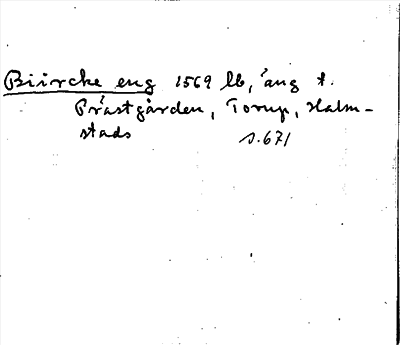 Biircke eng 1569 lb, äng t.
Prästgården, Torup, Halm-
stads s.671